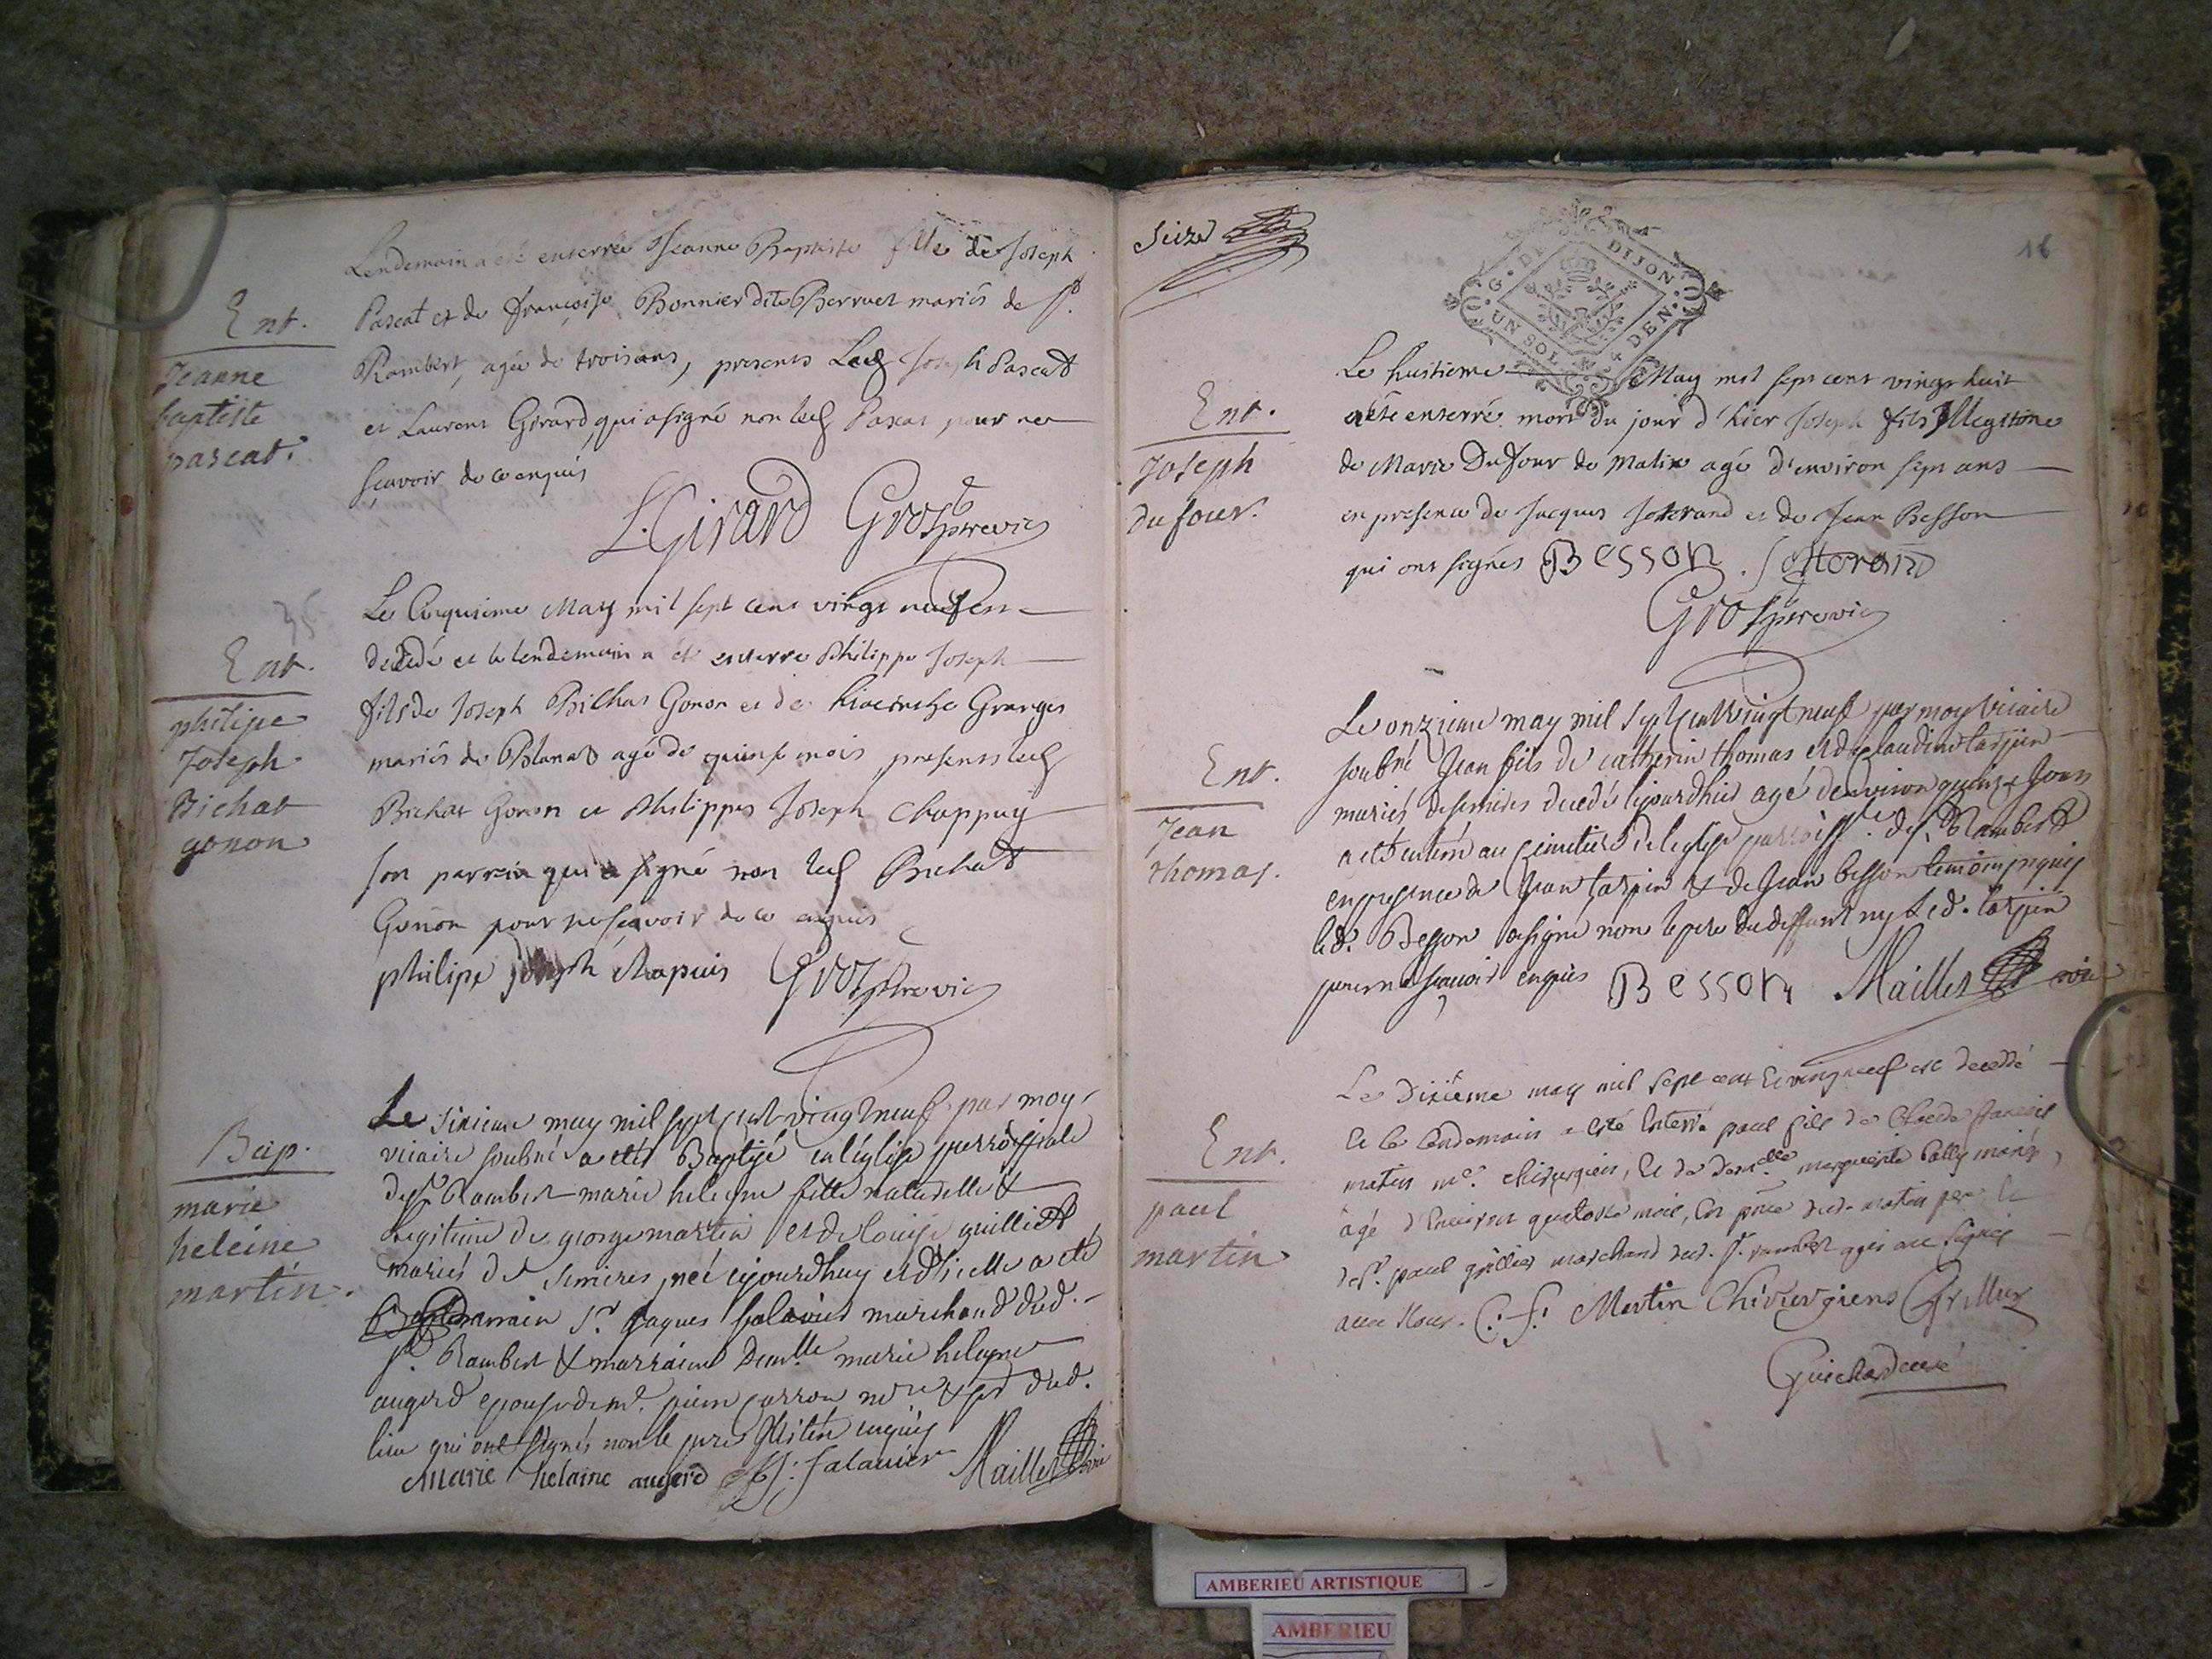 Lendemain a été enterrée Jeanne Baptiste fille de Joseph
Pascat et de françoise Bonnier dite Berruet mariés de St.
Rambert, agée de trois ans, presents Led Joseph Pascat
et Laurent Girard qui a signé non led Pascat pour ne
sçavoir de ce enquis
L. Girard Grosperevic
Ent.
Jeanne
baptiste
pascat.
Le Cinquieme May mil sept cent vingt neuf est
decedé et le lendemain a été enterré Philippe Joseph
fils de Joseph Bichat Gonon et de hiacinthe Granges
mariés de Blanas agé de quinse mois presents led
Bichat Gonon et Philippes Joseph Chappuy
son parrein qui a signé non led Bichat
Gonon pour ne sçavoir de ce enquis
philipe Joseph chapuis Grosperevic
Ent.
philipe
Joseph
Bichat
gonon
Le sixieme may mil sept cent vingt neuf par moy
vicaire soubné a été Baptisé en l'église parroissiale
de St Rambert marie heleyne fille naturelle &
Legitime de george martin et de louise guilliet
mariés de Semires née cejourdhuy et d'icelle a été
parrain Sr. Jaques salavuer marchand dud.
St. Rambert & marraine Demlle marie heleyne
augerd epouse de mr. pierre carron nre & pr dud.
lieu qui ont signés non le pere illiteré enquis
Marie helaine augerd J: salauier Maillet vic
Bap.
marie
heleine
martin.
Seize
16
G. DE DIJON
UN SOL 4 DEN.
Le huitieme May mil sept cent vingt huit
a été enterré mort du jour d'hier Joseph fils Illegitime
de Marie Dufour de Matin agé d'environ sept ans
en presence de Jacques Sotterand et de Jean Besson
qui ont signés Besson. Sotterand
Grosperevic
Ent.
Joseph
dufour.
Le onzieme may mil sept cent vingt neuf par moy viciaire
soubné Jean fils de catherin thomas et de claudine tarpin
mariés de semires decedé cejourdhui agé denviron quinze jours
a eté enterré au cimetiere de leglise parroissle. de St. Rambert
en presence de Jean tarpin & de Jean besson temoins requis
led. Besson a signé non le pere du deffunt ny led. tarpin
pour ne sçavoir enquis Besson Maillet vic
Ent.
Jean
thomas.
Le Dixième may mil sept cent et vingt neuf est decedé
et le lendemain a esté Enterré paul fils de Claude francois
martin me. chirurgien, et de demelle marguerite mariés,
agé d'Environ quatorze mois, En pnce dud. martin pere, et
de Sr. paul grillier marchand dud. St. rambert qui ont signés
avec Nous. C: f: Martin Chirurgiens Grillier
Guichard curé
Ent.
paul
martin
AMBERIEU ARTISTIQUE
AMBERIEU